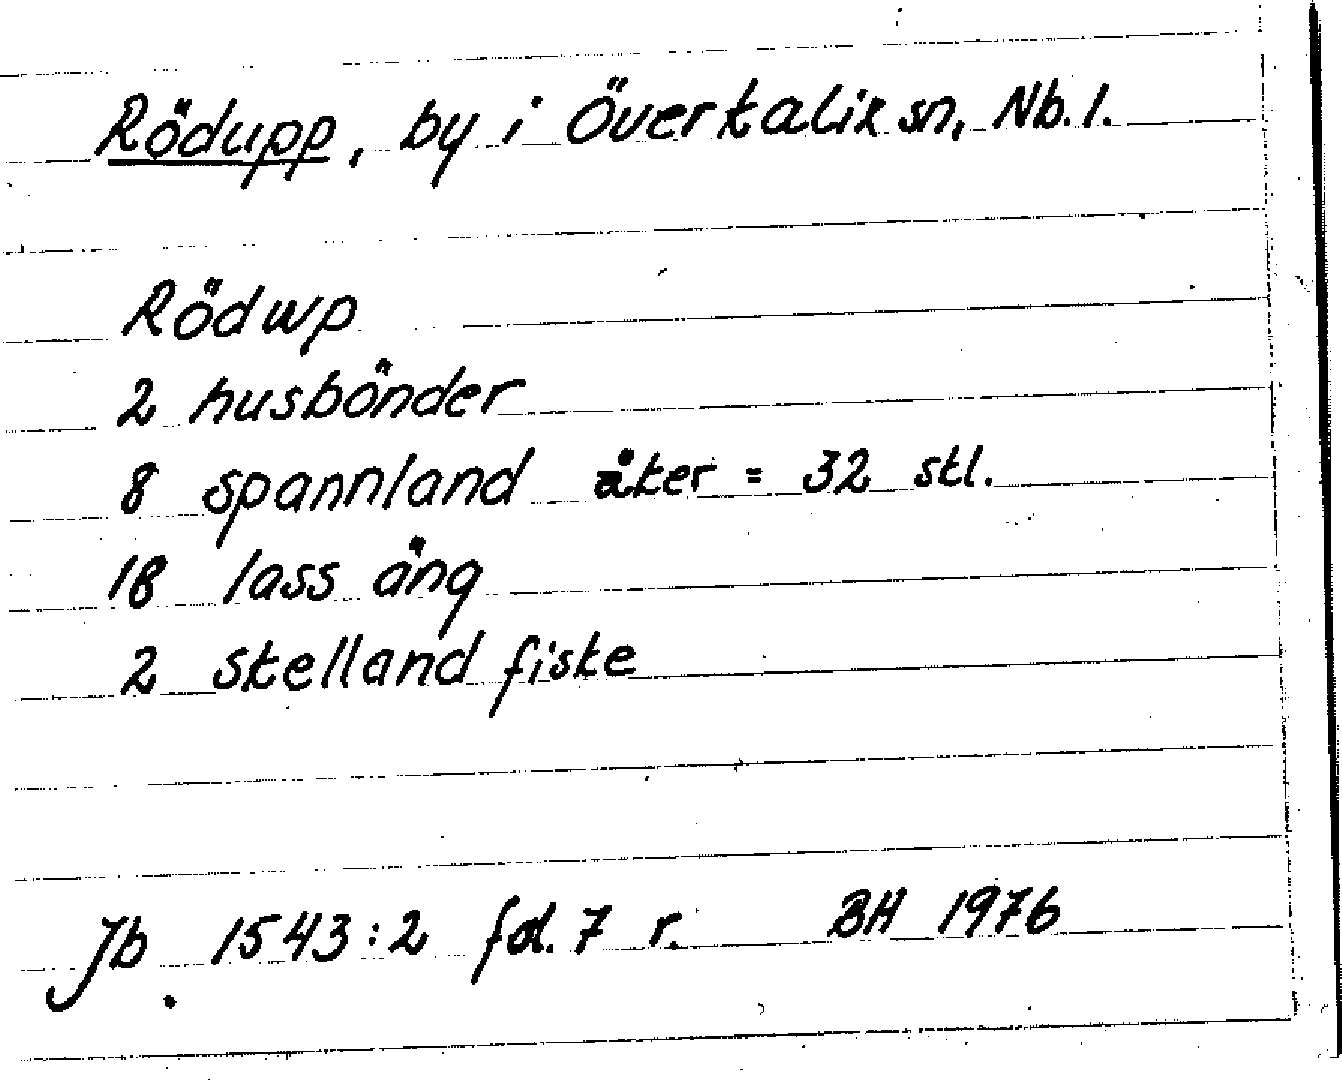 Rödupp, by i Överkalix sn, Nb. l.
Rödwp
2 husbönder
8 spannland åker = 32 stl.
18 lass äng
2 skelland fiske
Jb. 1543:2 fol. 7 r. BH 1976